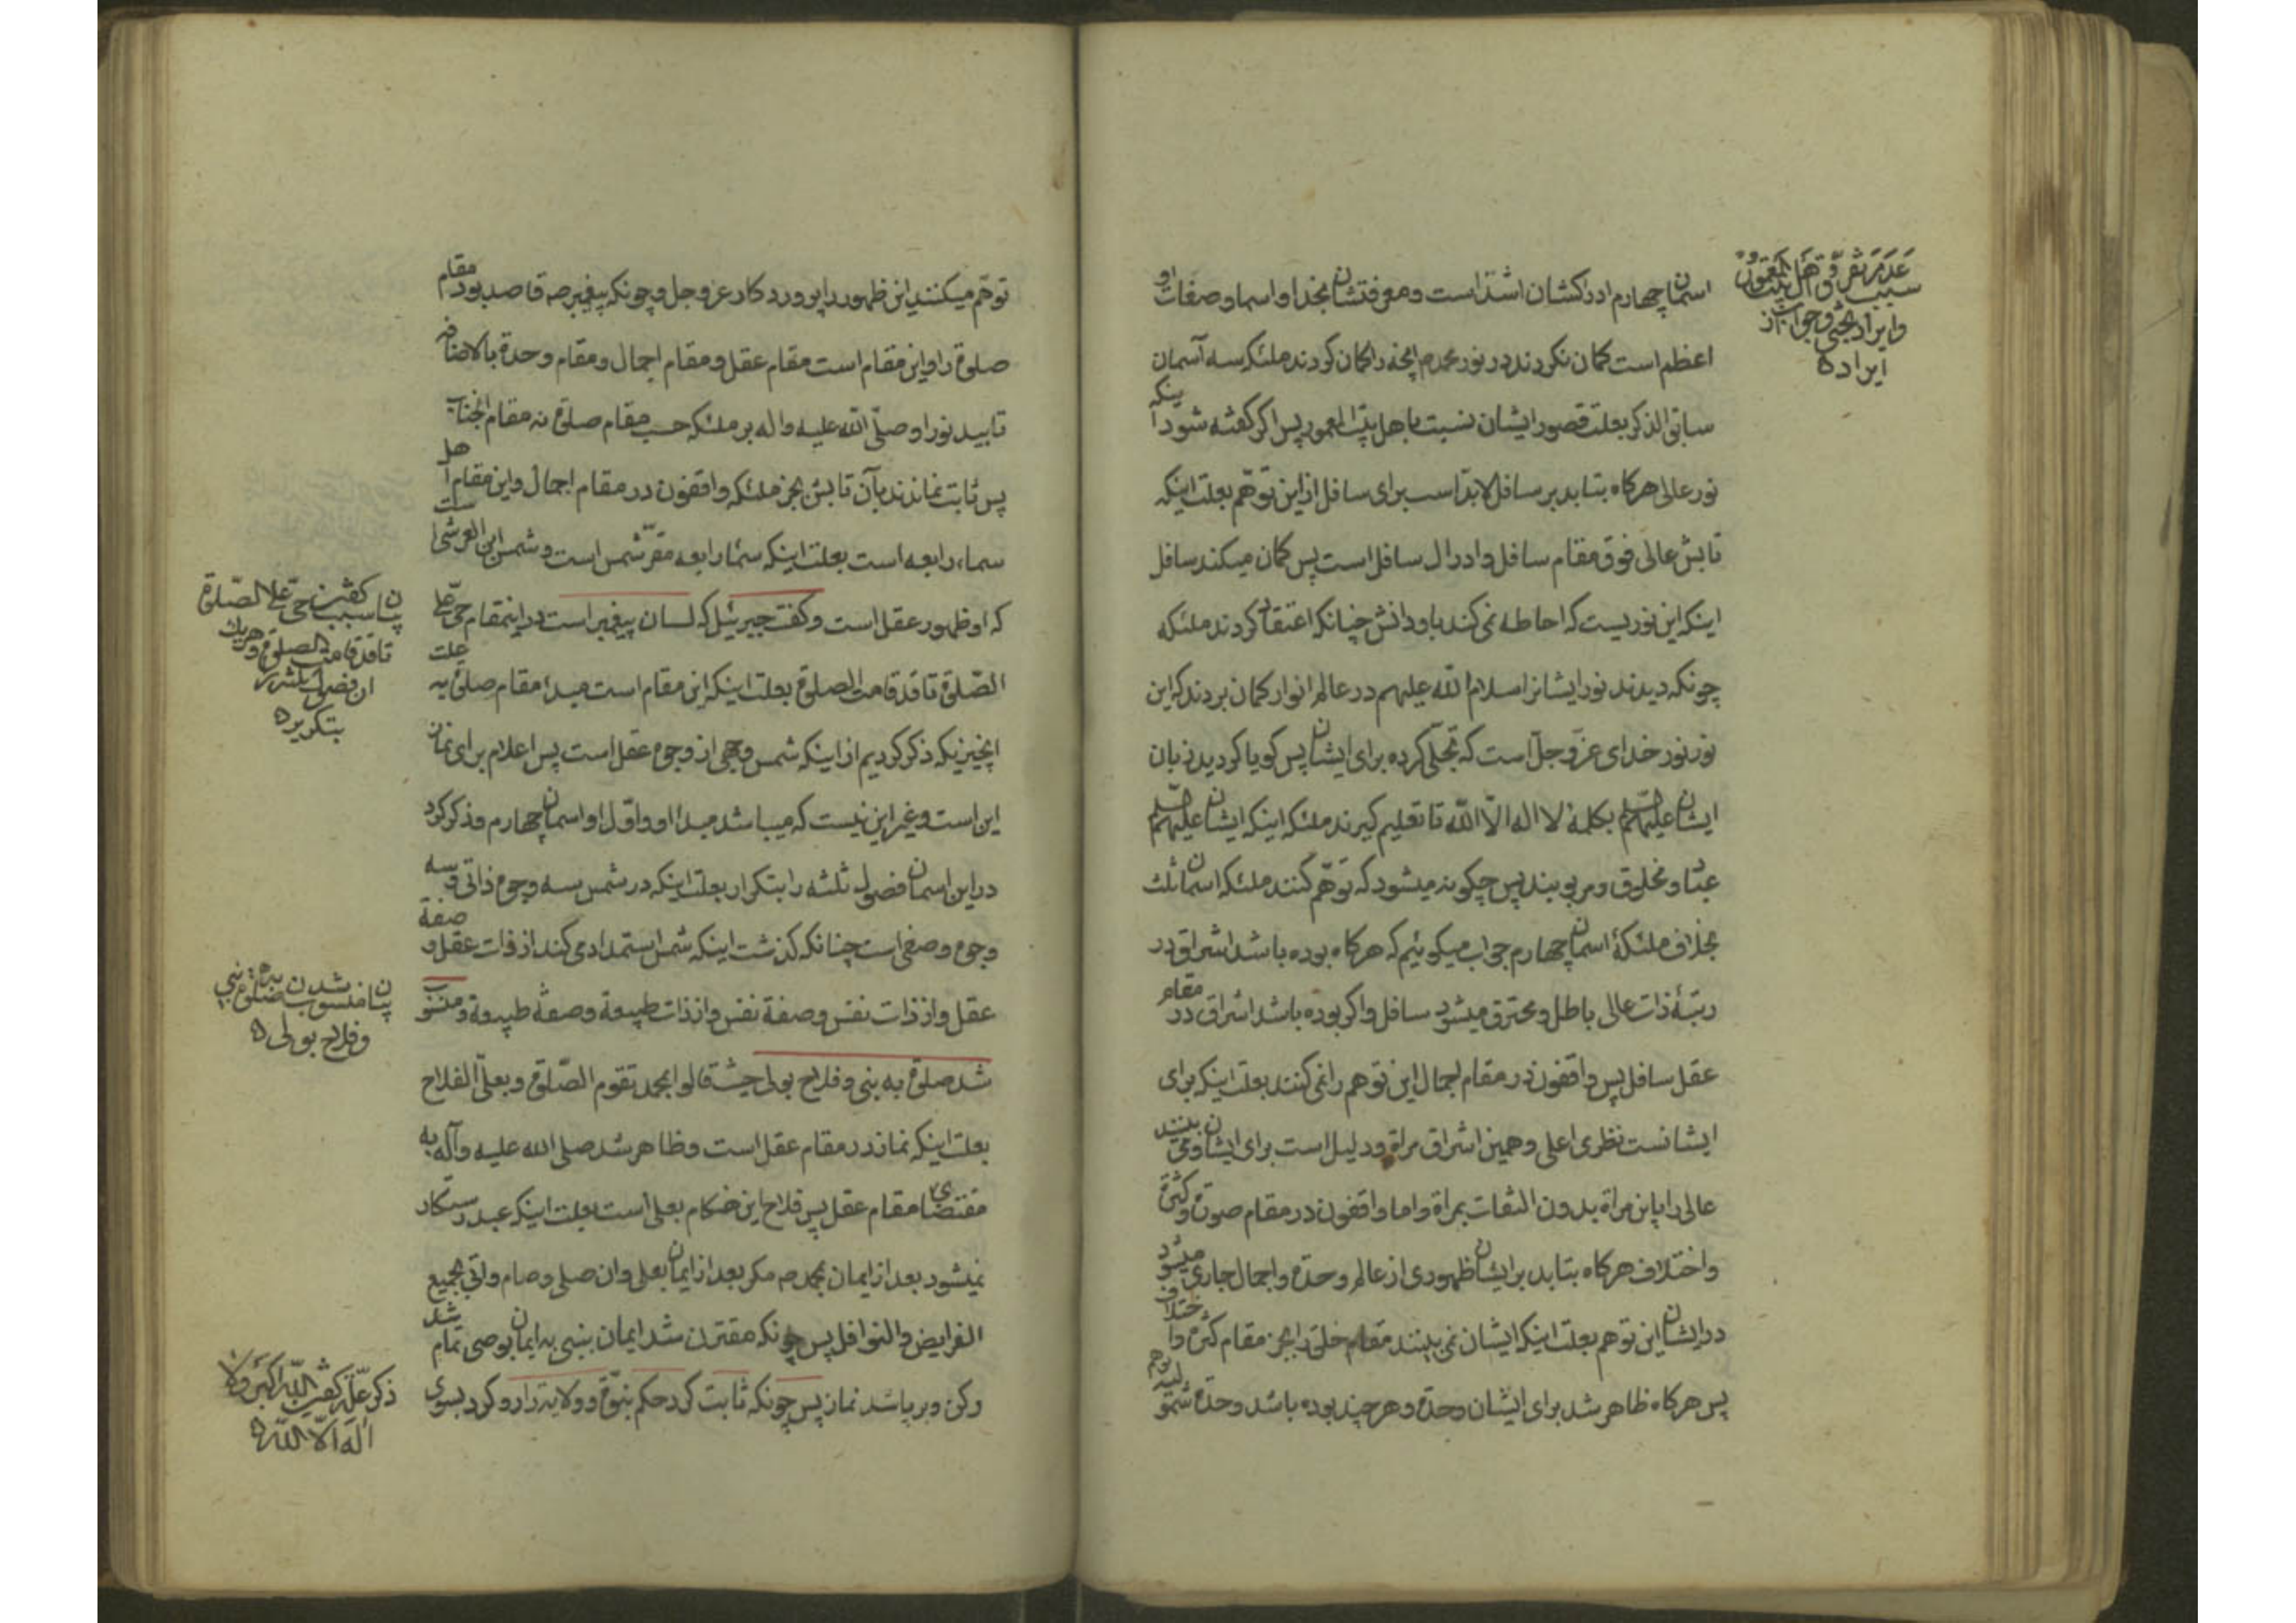 عدم تفرق اهل بیت المعمور
سبب
وایراد بحثی و جواب از
ایراد ه
اسمان چهارم ادراکشان اشد است و معرفتشان بخدا و اسما و صفات او
اعظم است کمان نکردند در نور محمدم انچه را کمان کردند ملئکه سه آسمان
سابق الذکر بعلت قصور ایشان نسبت باهل بیت المعمور پس اکر کفته شود اینکه
نور عالی هرکاه بتابد بر سافل لابد است برای سافل از این توهّم بعلت اینکه
تابش عالی فوق مقام سافل و ادراك سافل است پس کمان میکند سافل
اینکه این نوریست که احاطه نمی کند باو دانش چنانکه اعتقاد کردند ملئکه
چونکه دیدند نور ایشانرا سلام الله علیهم در عالم انوار کمان بردند که این
نور نور خدای عزّ و جلّ است که تجلّی کرده برای ایشان پس کویا کردید زبان
ایشان علیهم بکلمهٔ لا اله الّا الله تا تعلیم کیرند ملئکه اینکه ایشان علیهم
عباد و مخلوق و مربوبند پس چکونه میشود که توهّم کنند ملئکه اسمان ثلث
بخلاف ملئکهٔ اسمان چهارم جواب میکوئیم که هرکاه بوده باشد اشراق در
رتبهٔ ذات عالی باطل و محترق میشود سافل و اکر بوده باشد اشراق در مقام
عقل سافل پس واقفون در مقام اجمال این توهم را نمی کنند بعلت اینکه برای
ایشانست نظری اعلی و همین اشراق مراة و دلیل است برای ایشان و می بینند
عالی را باین مراة بدون التفات بمراة و اما واقفون در مقام صورة و کثرة
و اختلاف هرکاه بتابد بر ایشان ظهوری از عالم وحدة و اجمال جاری میشود
در ایشان این توهم بعلت اینکه ایشان نمی بینند مقام خلق را بجز مقام کثرة و اختلاف
پس هرکاه ظاهر شد برای ایشان وحدة و هر چند بوده باشد وحدة
توهّم میکنند این ظهور را پروردکار عز و جل و چونکه پیغمبر ص قاصد بود مقام
صلوة را و این مقام است مقام عقل و مقام اجمال و مقام وحدة بالاضافه
تابید نور او صلّی الله علیه و اله بر ملئکه حسب مقام صلوة نه مقام انجناب
پس ثابت نماندند بآن تابش بجز ملئکه واقفون در مقام اجمال و این مقام اهل
سماء رابعه است بعلت اینکه سماء رابعه مقرّ شمس است و شمس این العرش است
که او ظهور عقل است و کفت جبرئیل که لسان پیغمبر است در اینمقام حیّ علی
الصّلوة تا قد قامت الصلوة بعلت اینکه این مقام است مبدا مقام صلوة به علت
انچیزیکه ذکر کردیم از اینکه شمس وجهی از وجوه عقل است پس اعلام برای نمان
این است و غیر این نیست که میباشد مبداء او و اوّل او اسمان چهارم و ذکر کرد
در این اسمان فصول ثلثه را بتکرار بعلت اینکه در شمس سه وجوه ذاتی و سه
وجوه وصفی است چنانکه کذشت اینکه شمس استمداد می کند از ذات عقل و صفة
عقل و از ذات نفس و صفة نفس و از ذات طبیعة و صفة طبیعة و منسوب
شد صلوة به نبی و فلاح بولی حیث قالوا بمحمد تقوم الصّلوة و بعلیّ الفلاح
بعلت اینکه نماز در مقام عقل است و ظاهر شد صلی الله علیه و آله به
مقتضای مقام عقل پس فلاح این هنکام بعلی است بعلت اینکه عبد رستکار
نمیشود بعد از ایمان بمحمد ص مکر بعد از ایمان بعلی وان صلی و صام و اتی بجمیع
الفرایض و النوافل پس چونکه مقترن شد ایمان بنبی به ایمان بوصی تمام شد
رکن و برپا شد نماز پس چونکه ثابت کرد حکم نبوّة و ولایة را رو کرد بسوی
بیان سبب کفتن حیّ علی الصّلوة
تا قد قامت الصلوة و هریك
ان فصول
بتکریر ه
بیان منسوب شدن صلوة به نبی
و فلاح بولی ه
ذکر علّة کفتن الله اکبر و لا
اله الّا الله ه